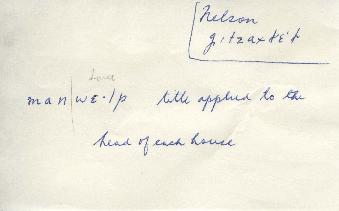 Nelson
gitzaxłéł
man|wε·lp title applied to the
head of each house